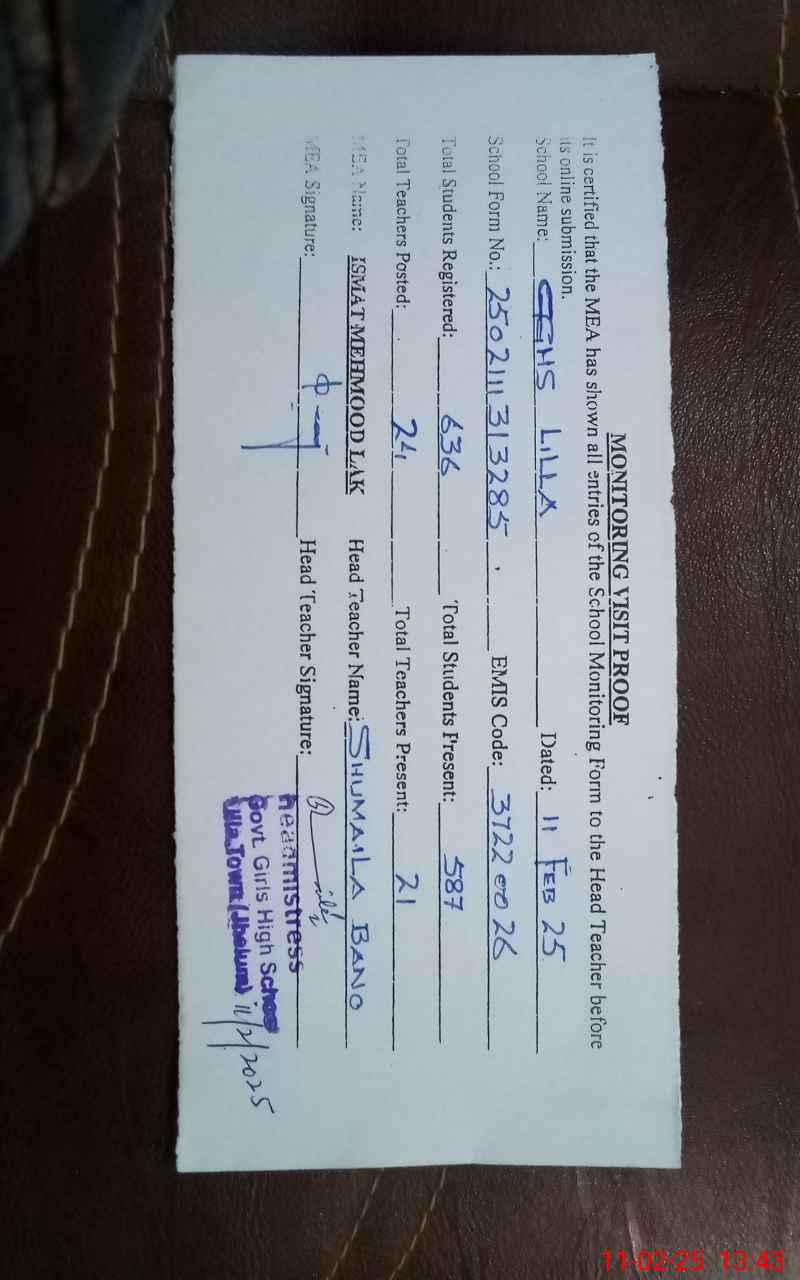 MONITORING VISIT PROOF
It is certified that the MEA has shown all entries of the School Monitoring Form to the Head Teacher before
its online submission.
School Name: GGHS LILLA Dated: 11 FEB 25
School Form No.: 2502111313285 EMIS Code: 37220026
Total Students Registered: 636 Total Students Present: 587
Total Teachers Posted: 24 Total Teachers Present: 21
MEA Name: ISMAT MEHMOOD LAK Head Teacher Name: SHUMAILA BANO
MEA Signature: Head Teacher Signature:
Headmistress
Govt. Girls High School
Lilla Town (Jhelum) 11/2/2025
11-02-25 13:43